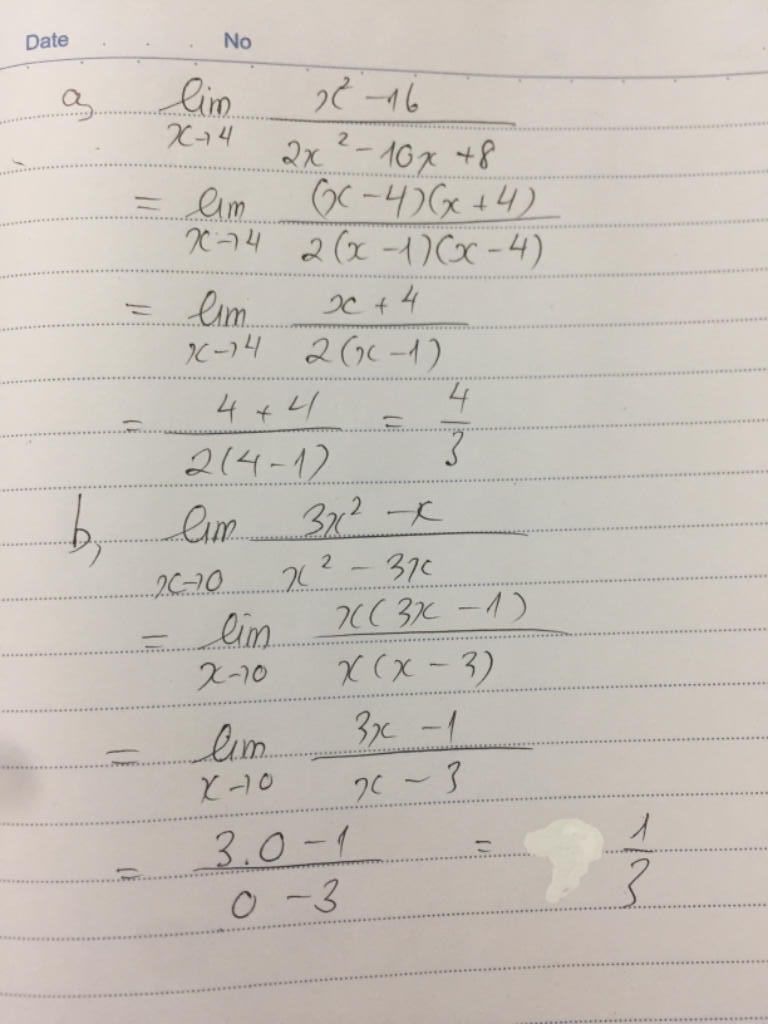 Date . . . No
a, lim x→4 (x² - 16)/(2x² - 10x + 8)
= lim x→4 ((x - 4)(x + 4))/(2(x - 1)(x - 4))
= lim x→4 (x + 4)/(2(x - 1))
= (4 + 4)/(2(4 - 1)) = 4/3
b, lim x→0 (3x² - x)/(x² - 3x)
= lim x→0 (x(3x - 1))/(x(x - 3))
= lim x→0 (3x - 1)/(x - 3)
= (3.0 - 1)/(0 - 3) = 1/3